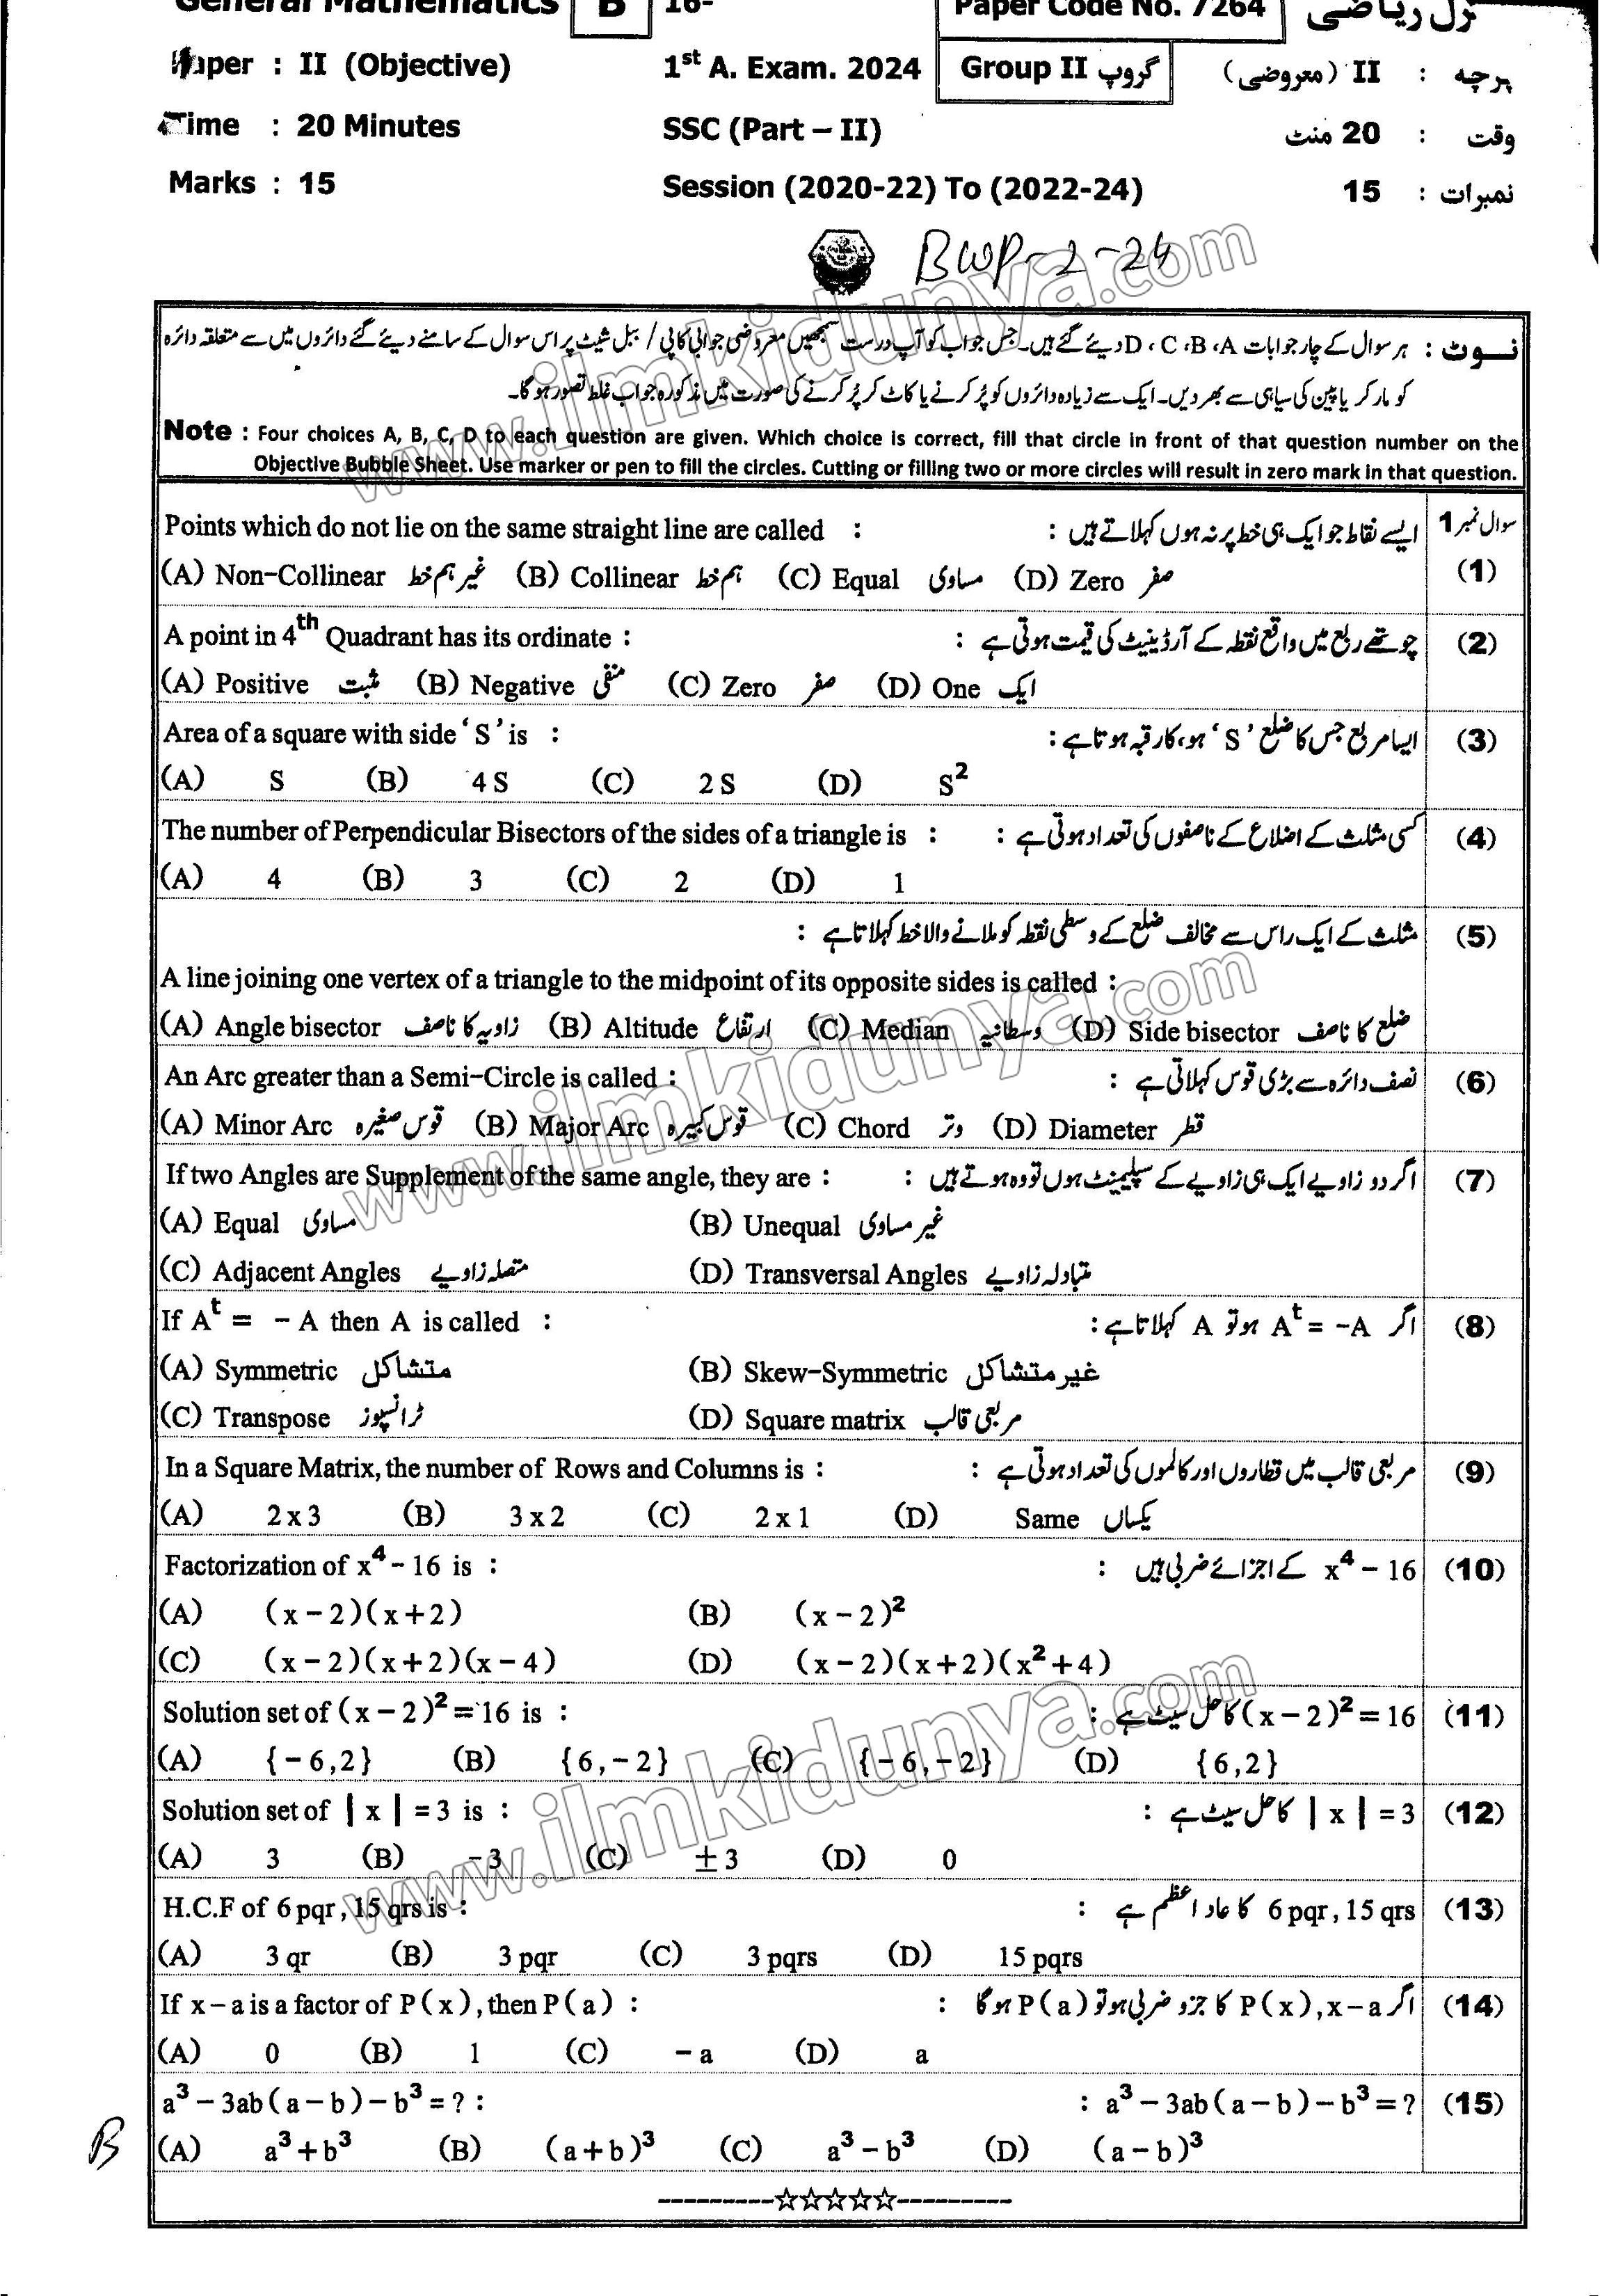 General Mathematics B 16- Paper Code No. 7264 جنرل ریاضی
Paper : II (Objective) 1st A. Exam. 2024 Group II گروپ پرچہ : II (معروضی)
Time : 20 Minutes SSC (Part – II) وقت : 20 منٹ
Marks : 15 Session (2020-22) To (2022-24) نمبرات : 15
BWP-2-24
نوٹ : ہر سوال کے چار جوابات A، B، C، D دیئے گئے ہیں۔ جس جواب کو آپ درست سمجھیں معروضی جوابی کاپی / ببل شیٹ پر اس سوال کے سامنے دیئے گئے دائروں میں سے متعلقہ دائرہ
کو مارکر یا پین کی سیاہی سے بھر دیں۔ ایک سے زیادہ دائروں کو پُر کرنے یا کاٹ کر پُر کرنے کی صورت میں مذکورہ جواب غلط تصور ہو گا۔
Note : Four choices A, B, C, D to each question are given. Which choice is correct, fill that circle in front of that question number on the
Objective Bubble Sheet. Use marker or pen to fill the circles. Cutting or filling two or more circles will result in zero mark in that question.
Points which do not lie on the same straight line are called : ایسے نقاط جو ایک ہی خط پر نہ ہوں کہلاتے ہیں : سوال نمبر 1
(A) Non-Collinear غیر ہم خط (B) Collinear ہم خط (C) Equal مساوی (D) Zero صفر (1)
A point in 4th Quadrant has its ordinate : چوتھے ربع میں واقع نقطہ کے آرڈینیٹ کی قیمت ہوتی ہے : (2)
(A) Positive مثبت (B) Negative منفی (C) Zero صفر (D) One ایک
Area of a square with side ‘ S ’ is : ایسا مربع جس کا ضلع ‘ S ’ ہو، کا رقبہ ہوتا ہے : (3)
(A) S (B) 4 S (C) 2 S (D) S²
The number of Perpendicular Bisectors of the sides of a triangle is : کسی مثلث کے اضلاع کے ناصفوں کی تعداد ہوتی ہے : (4)
(A) 4 (B) 3 (C) 2 (D) 1
مثلث کے ایک راس سے مخالف ضلع کے وسطی نقطہ کو ملانے والا خط کہلاتا ہے : (5)
A line joining one vertex of a triangle to the midpoint of its opposite sides is called :
(A) Angle bisector زاویہ کا ناصف (B) Altitude ارتفاع (C) Median وسطانیہ (D) Side bisector ضلع کا ناصف
An Arc greater than a Semi-Circle is called : نصف دائرہ سے بڑی قوس کہلاتی ہے : (6)
(A) Minor Arc قوس صغیرہ (B) Major Arc قوس کبیرہ (C) Chord وتر (D) Diameter قطر
If two Angles are Supplement of the same angle, they are : اگر دو زاویے ایک ہی زاویے کے سپلیمنٹ ہوں تو وہ ہوتے ہیں : (7)
(A) Equal مساوی (B) Unequal غیر مساوی
(C) Adjacent Angles متصلہ زاویے (D) Transversal Angles متبادلہ زاویے
If Aᵗ = - A then A is called : اگر Aᵗ = -A ہو تو A کہلاتا ہے : (8)
(A) Symmetric متشاکل (B) Skew-Symmetric غیر متشاکل
(C) Transpose ٹرانسپوز (D) Square matrix مربعی قالب
In a Square Matrix, the number of Rows and Columns is : مربعی قالب میں قطاروں اور کالموں کی تعداد ہوتی ہے : (9)
(A) 2 x 3 (B) 3 x 2 (C) 2 x 1 (D) Same یکساں
Factorization of x⁴ – 16 is : x⁴ – 16 کے اجزائے ضربی ہیں : (10)
(A) (x – 2)(x + 2) (B) (x – 2)²
(C) (x – 2)(x + 2)(x – 4) (D) (x – 2)(x + 2)(x² + 4)
Solution set of (x – 2)² = 16 is : (x – 2)² = 16 کا حل سیٹ ہے : (11)
(A) {– 6, 2} (B) {6, – 2} (C) {– 6, – 2} (D) {6, 2}
Solution set of | x | = 3 is : | x | = 3 کا حل سیٹ ہے : (12)
(A) 3 (B) –3 (C) ± 3 (D) 0
H.C.F of 6 pqr, 15 qrs is : 6 pqr, 15 qrs کا عاد اعظم ہے : (13)
(A) 3 qr (B) 3 pqr (C) 3 pqrs (D) 15 pqrs
If x – a is a factor of P(x), then P(a) : اگر P(x), x–a کا جزو ضربی ہو تو P(a) ہو گا : (14)
(A) 0 (B) 1 (C) – a (D) a
a³ – 3ab(a – b) – b³ = ? : a³ – 3ab(a – b) – b³ = ? : (15)
B (A) a³ + b³ (B) (a + b)³ (C) a³ – b³ (D) (a – b)³
---------☆☆☆☆☆---------
www.ilmkidunya.com
www.ilmkidunya.com
www.ilmkidunya.com